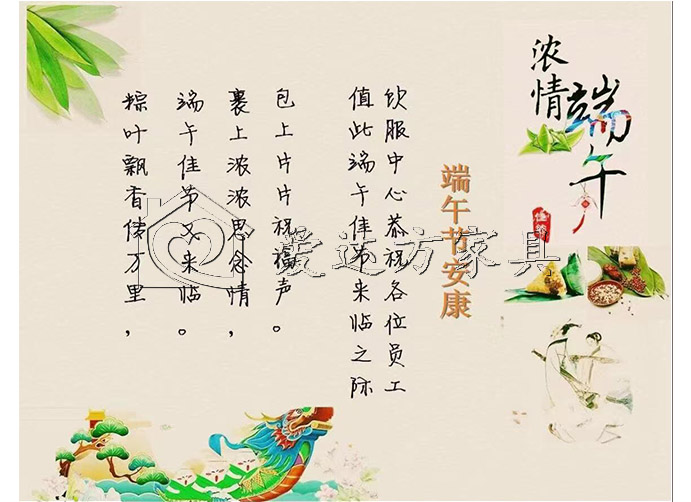 粽叶飘香传万里,
端午佳节又来临。
裹上浓浓思念情,
包上片片祝福声。
值此端午佳节来临之际
饮服中心恭祝各位员工
端午节安康
浓情
端午
佳节
爱达方家具